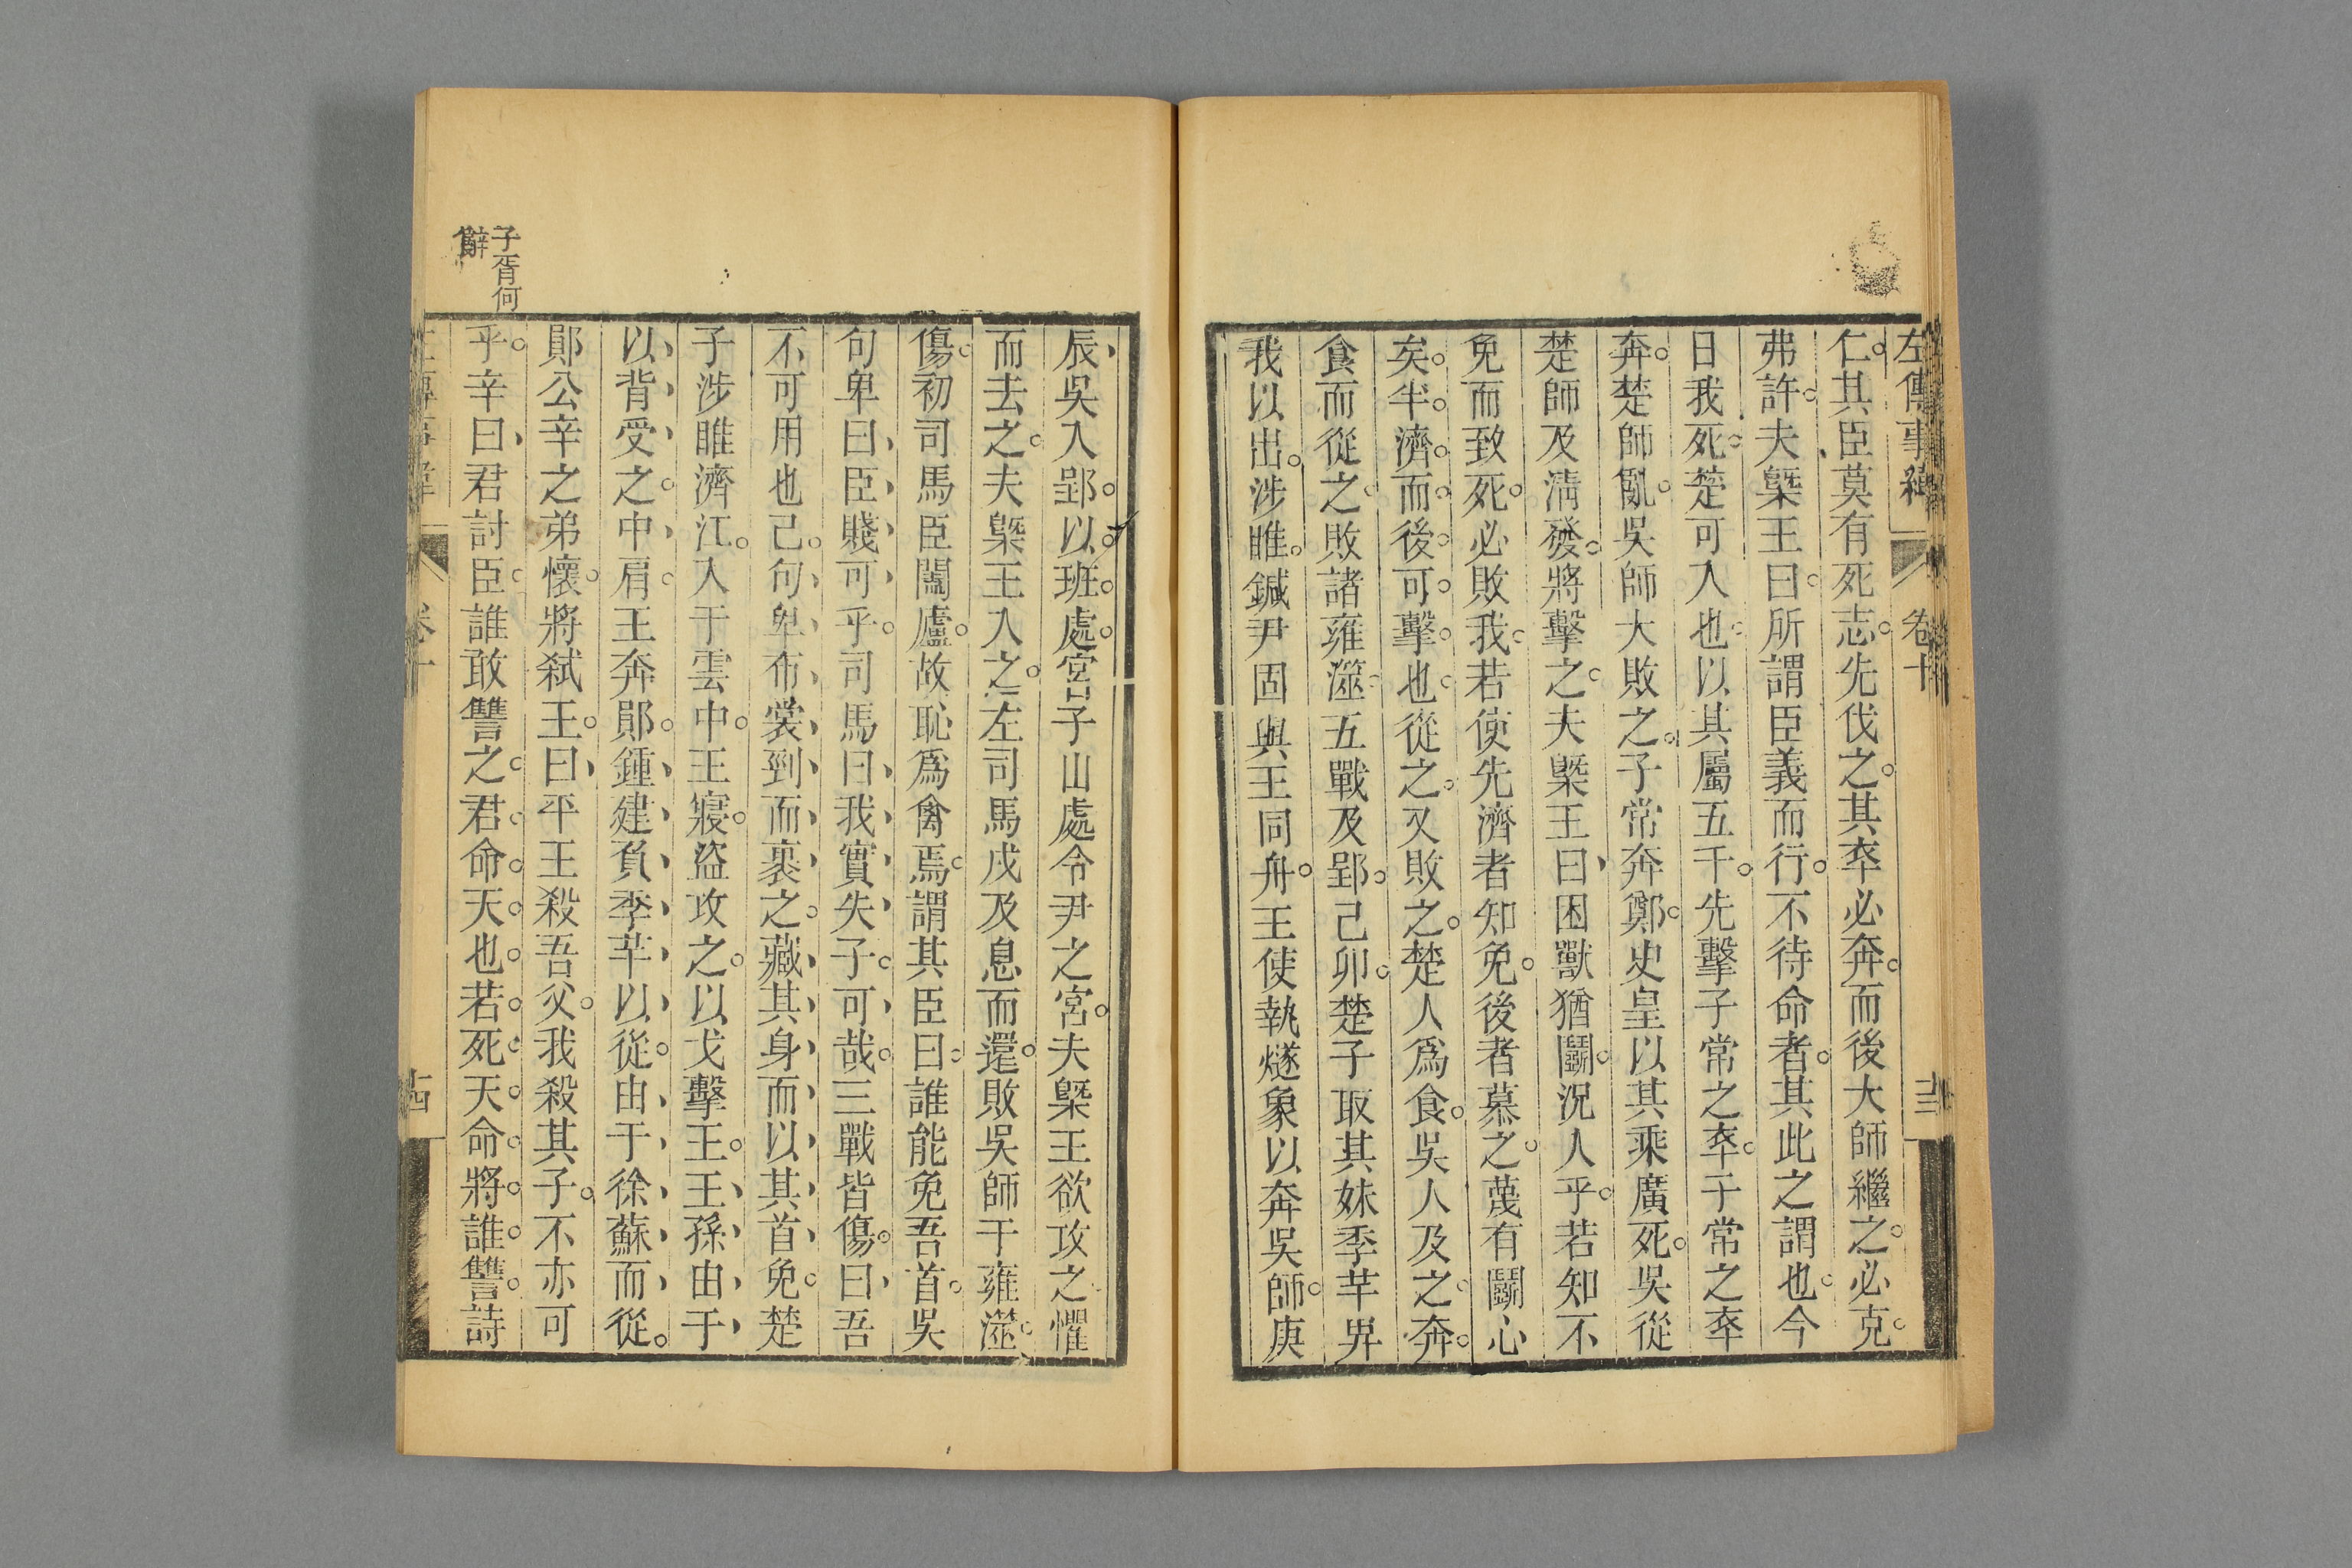 左傳事緯 卷十 十三
仁其臣莫有死志先伐之其卒必奔而後大師繼之必克
弗許夫槩王曰所謂臣義而行不待命者其此之謂也今
日我死楚可入也以其屬五千先擊子常之卒子常之卒
奔楚師亂吳師大敗之子常奔鄭史皇以其乘廣死吳從
楚師及淸發將擊之夫槩王曰困獸猶鬭況人乎若知不
免而致死必敗我若使先濟者知免後者慕之蔑有鬭心
矣半濟而後可擊也從之又敗之楚人爲食吳人及之奔
食而從之敗諸雍澨五戰及郢己卯楚子取其妹季芉畀
我以出涉睢鍼尹固與王同舟王使執燧象以奔吳師庚
辰吳入郢以班處宮子山處令尹之宮夫槩王欲攻之懼
而去之夫槩王入之左司馬戌及息而還敗吳師于雍澨
傷初司馬臣闔廬故恥爲禽焉謂其臣曰誰能免吾首吳
句卑曰臣賤可乎司馬曰我實失子可哉三戰皆傷曰吾
不可用也已句卑布裳剄而裹之藏其身而以其首免楚
子涉睢濟江入于雲中王寢盜攻之以戈擊王王孫由于
以背受之中肩王奔鄖鍾建負季芉以從由于徐蘇而從
鄖公辛之弟懷將弑王曰平王殺吾父我殺其子不亦可
乎辛曰君討臣誰敢讐之君命天也若死天命將誰讐詩
子胥何
辭
卷十 十四